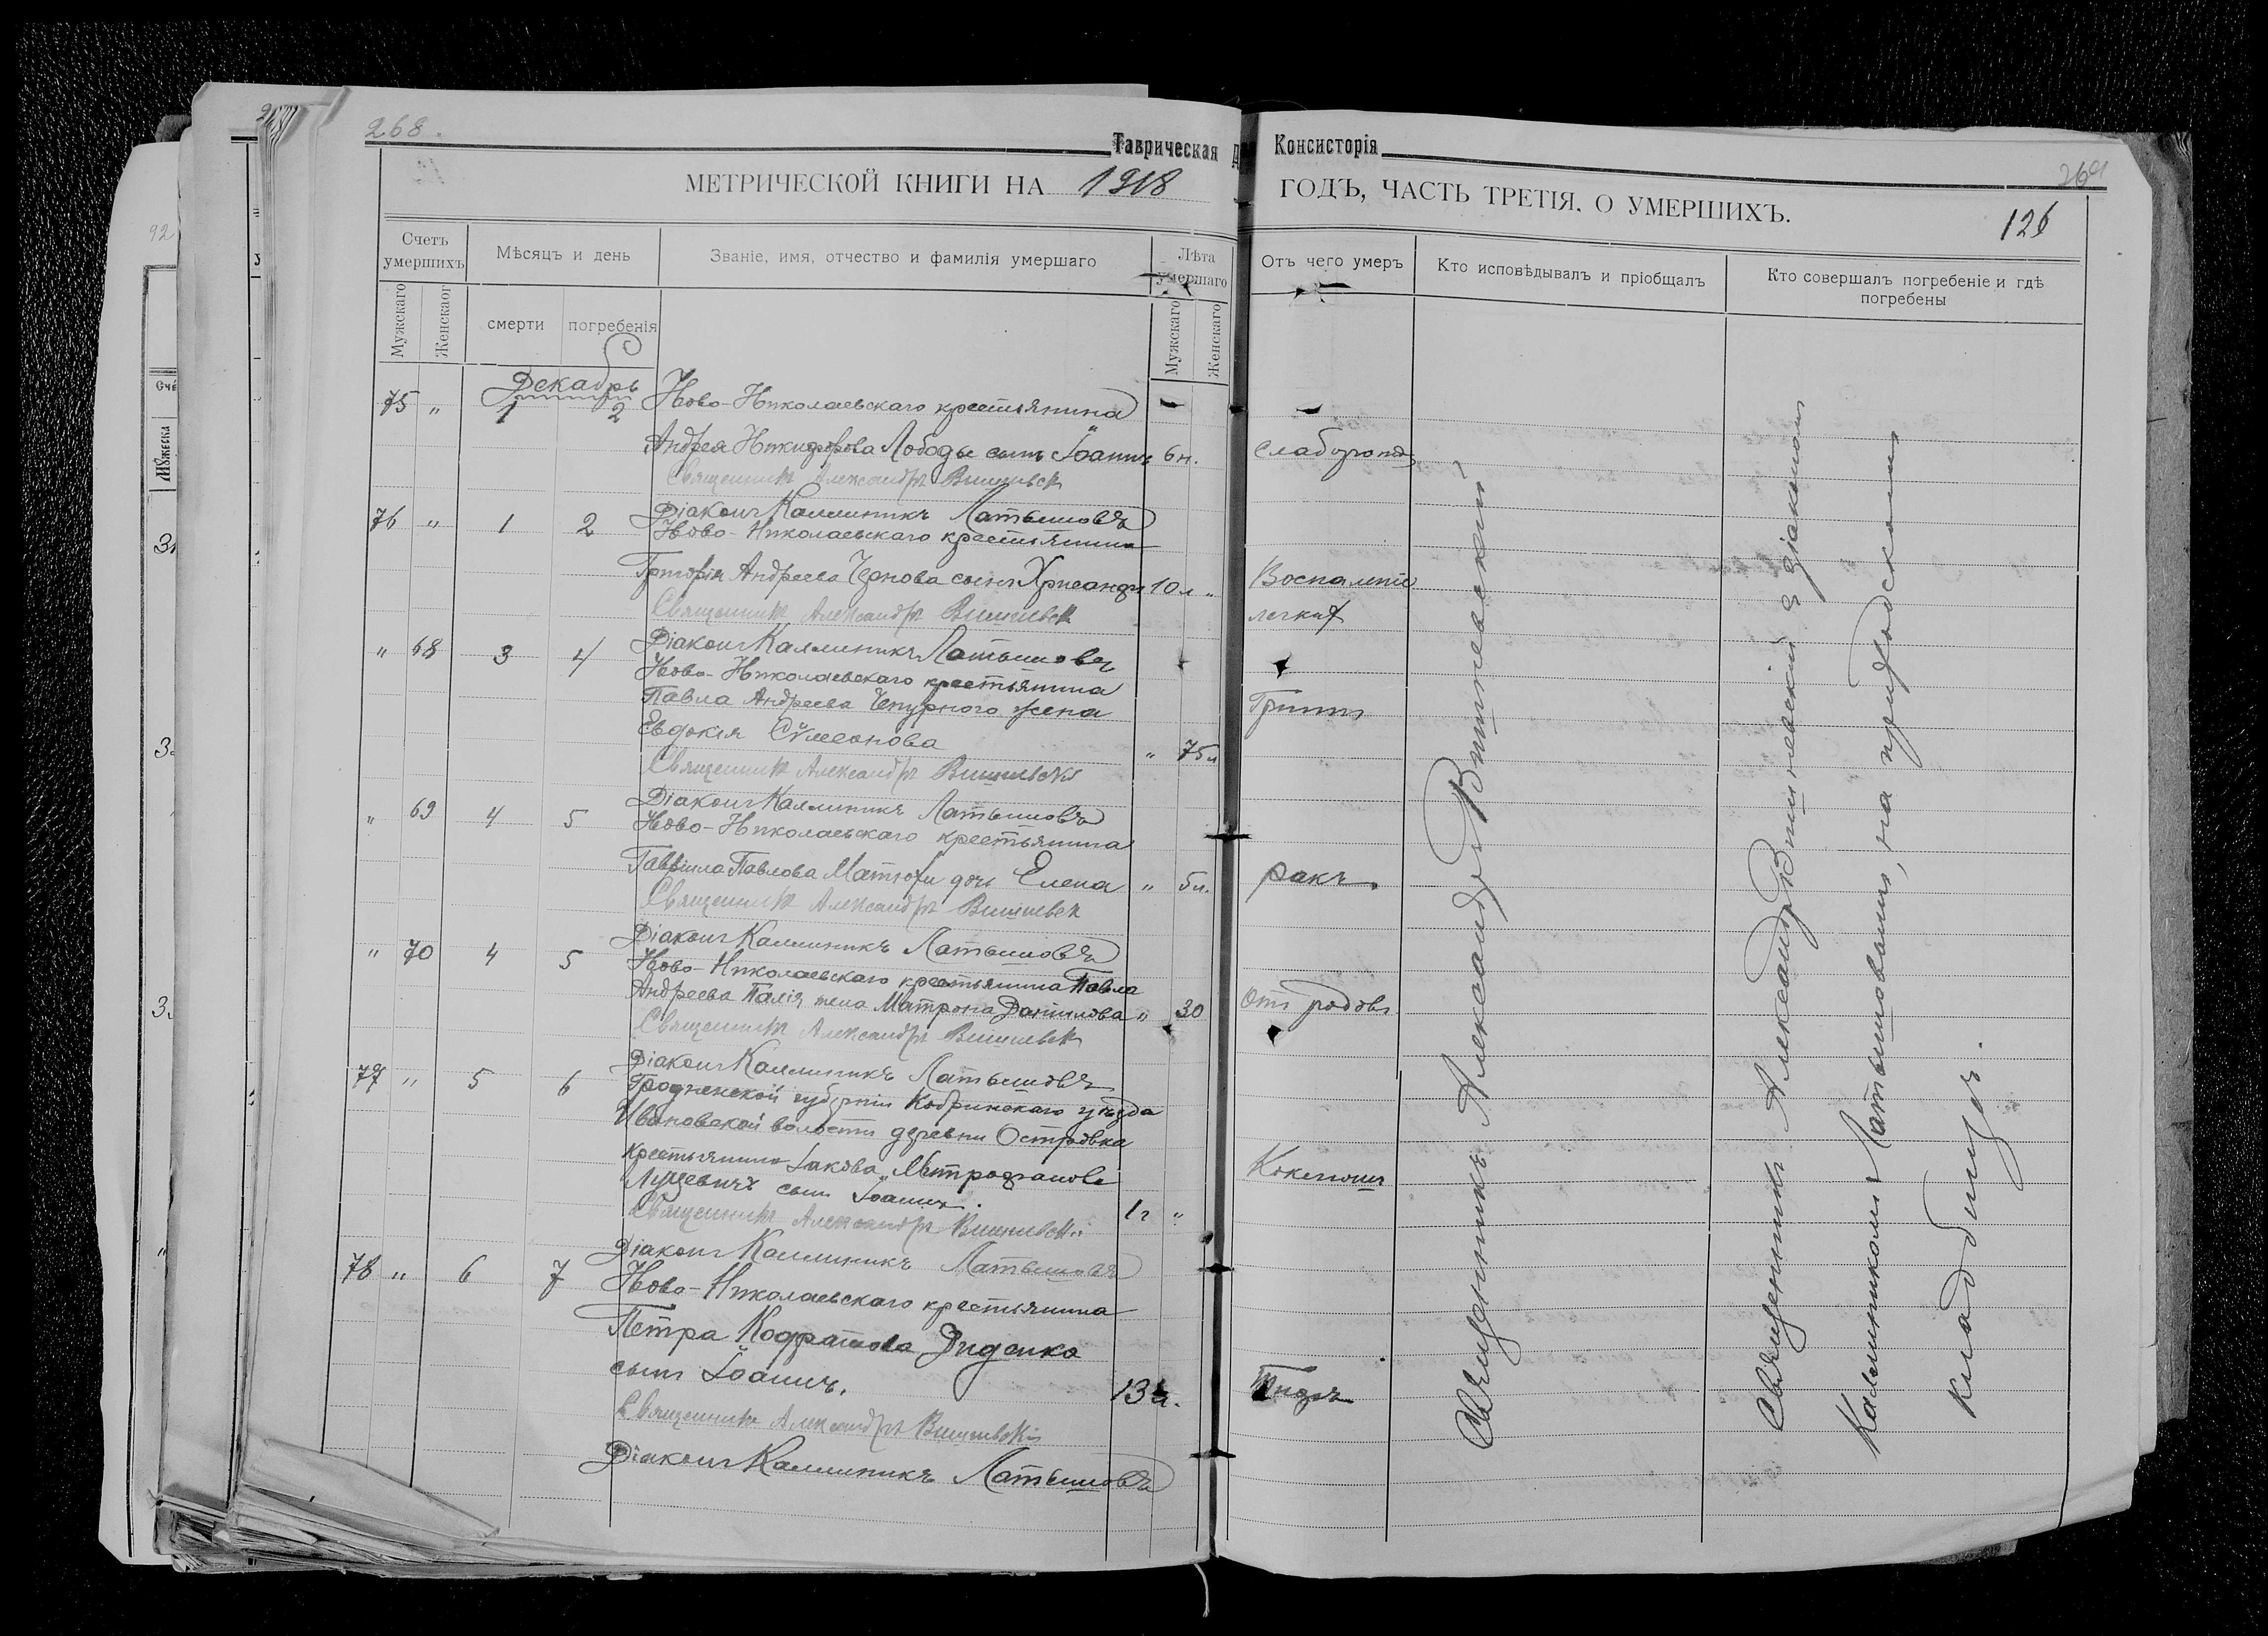 268.
Таврическая Д
МЕТРИЧЕСКОЙ КНИГИ НА 1918
Счетъ умершихъ
Мѣсяцъ и день
Званіе, имя, отчество и фамилія умершаго
Лѣта умершаго
Мужскаго
Женскаог
смерти
погребенія
Мужскаго
Женскаго
Декабрь
75 " 1 2 Ново-Николаевскаго крестьянина
Андрея Никифорова Лободы сынъ Іоаннъ 6 н.
Священникъ Александръ Вишневск
Діаконъ Каллиникъ Латышовъ
76 " 1 2 Ново-Николаевскаго крестьянина
Григорія Андреева Чернова сынъ Хрисанфъ 10 л "
Священникъ Александръ Вишневск
Діаконъ Каллиникъ Латышовъ
" 68 3 4 Ново-Николаевскаго крестьянина
Павла Андреева Чепурного жена
Евдокія Сѵмеонова " 75 л
Священникъ Александръ Вишневскі
Діаконъ Каллиникъ Латышовъ
" 69 4 5 Ново-Николаевскаго крестьянина
Гавріила Павлова дочь Елена " 5 л.
Священникъ Александръ Вишневск
Діаконъ Каллиникъ Латышовъ
" 70 4 5 Ново-Николаевскаго крестьянина Павла
Андреева Палія жена Матрона Даніилова " 30
Священникъ Александръ Вишневск
Діаконъ Каллиникъ Латышовъ
77 " 5 6 Гродненской губерніи Кобринскаго уѣзда
Ивановской волости деревни Островка
крестьянина Іакова Митрофанова
сынъ Іоаннъ. 1 г "
Священникъ Александръ Вишневскій
Діаконъ Каллиникъ Латышовъ
78 " 6 7 Ново-Николаевскаго крестьянина
Петра Кодратова Диденко
сынъ Іоаннъ. 13 л.
Священникъ Александръ Вишневскій
Діаконъ Каллиникъ Латышовъ
Консисторія
269
ГОДЪ, ЧАСТЬ ТРЕТІЯ, О УМЕРШИХЪ.
126
Отъ чего умеръ
Кто исповѣдывалъ и пріобщалъ
Кто совершалъ погребеніе и гдѣ погребены
Воспаленіе
легкихъ
Гриппъ
ракъ
Отъ родовъ
Коклюшъ
Тифъ
Священникъ Александръ Вишневскій
Священникъ Александръ Вишневскій съ діакономъ
Каллиникомъ Латышовымъ, на приходскомъ
кладбищѣ.
92